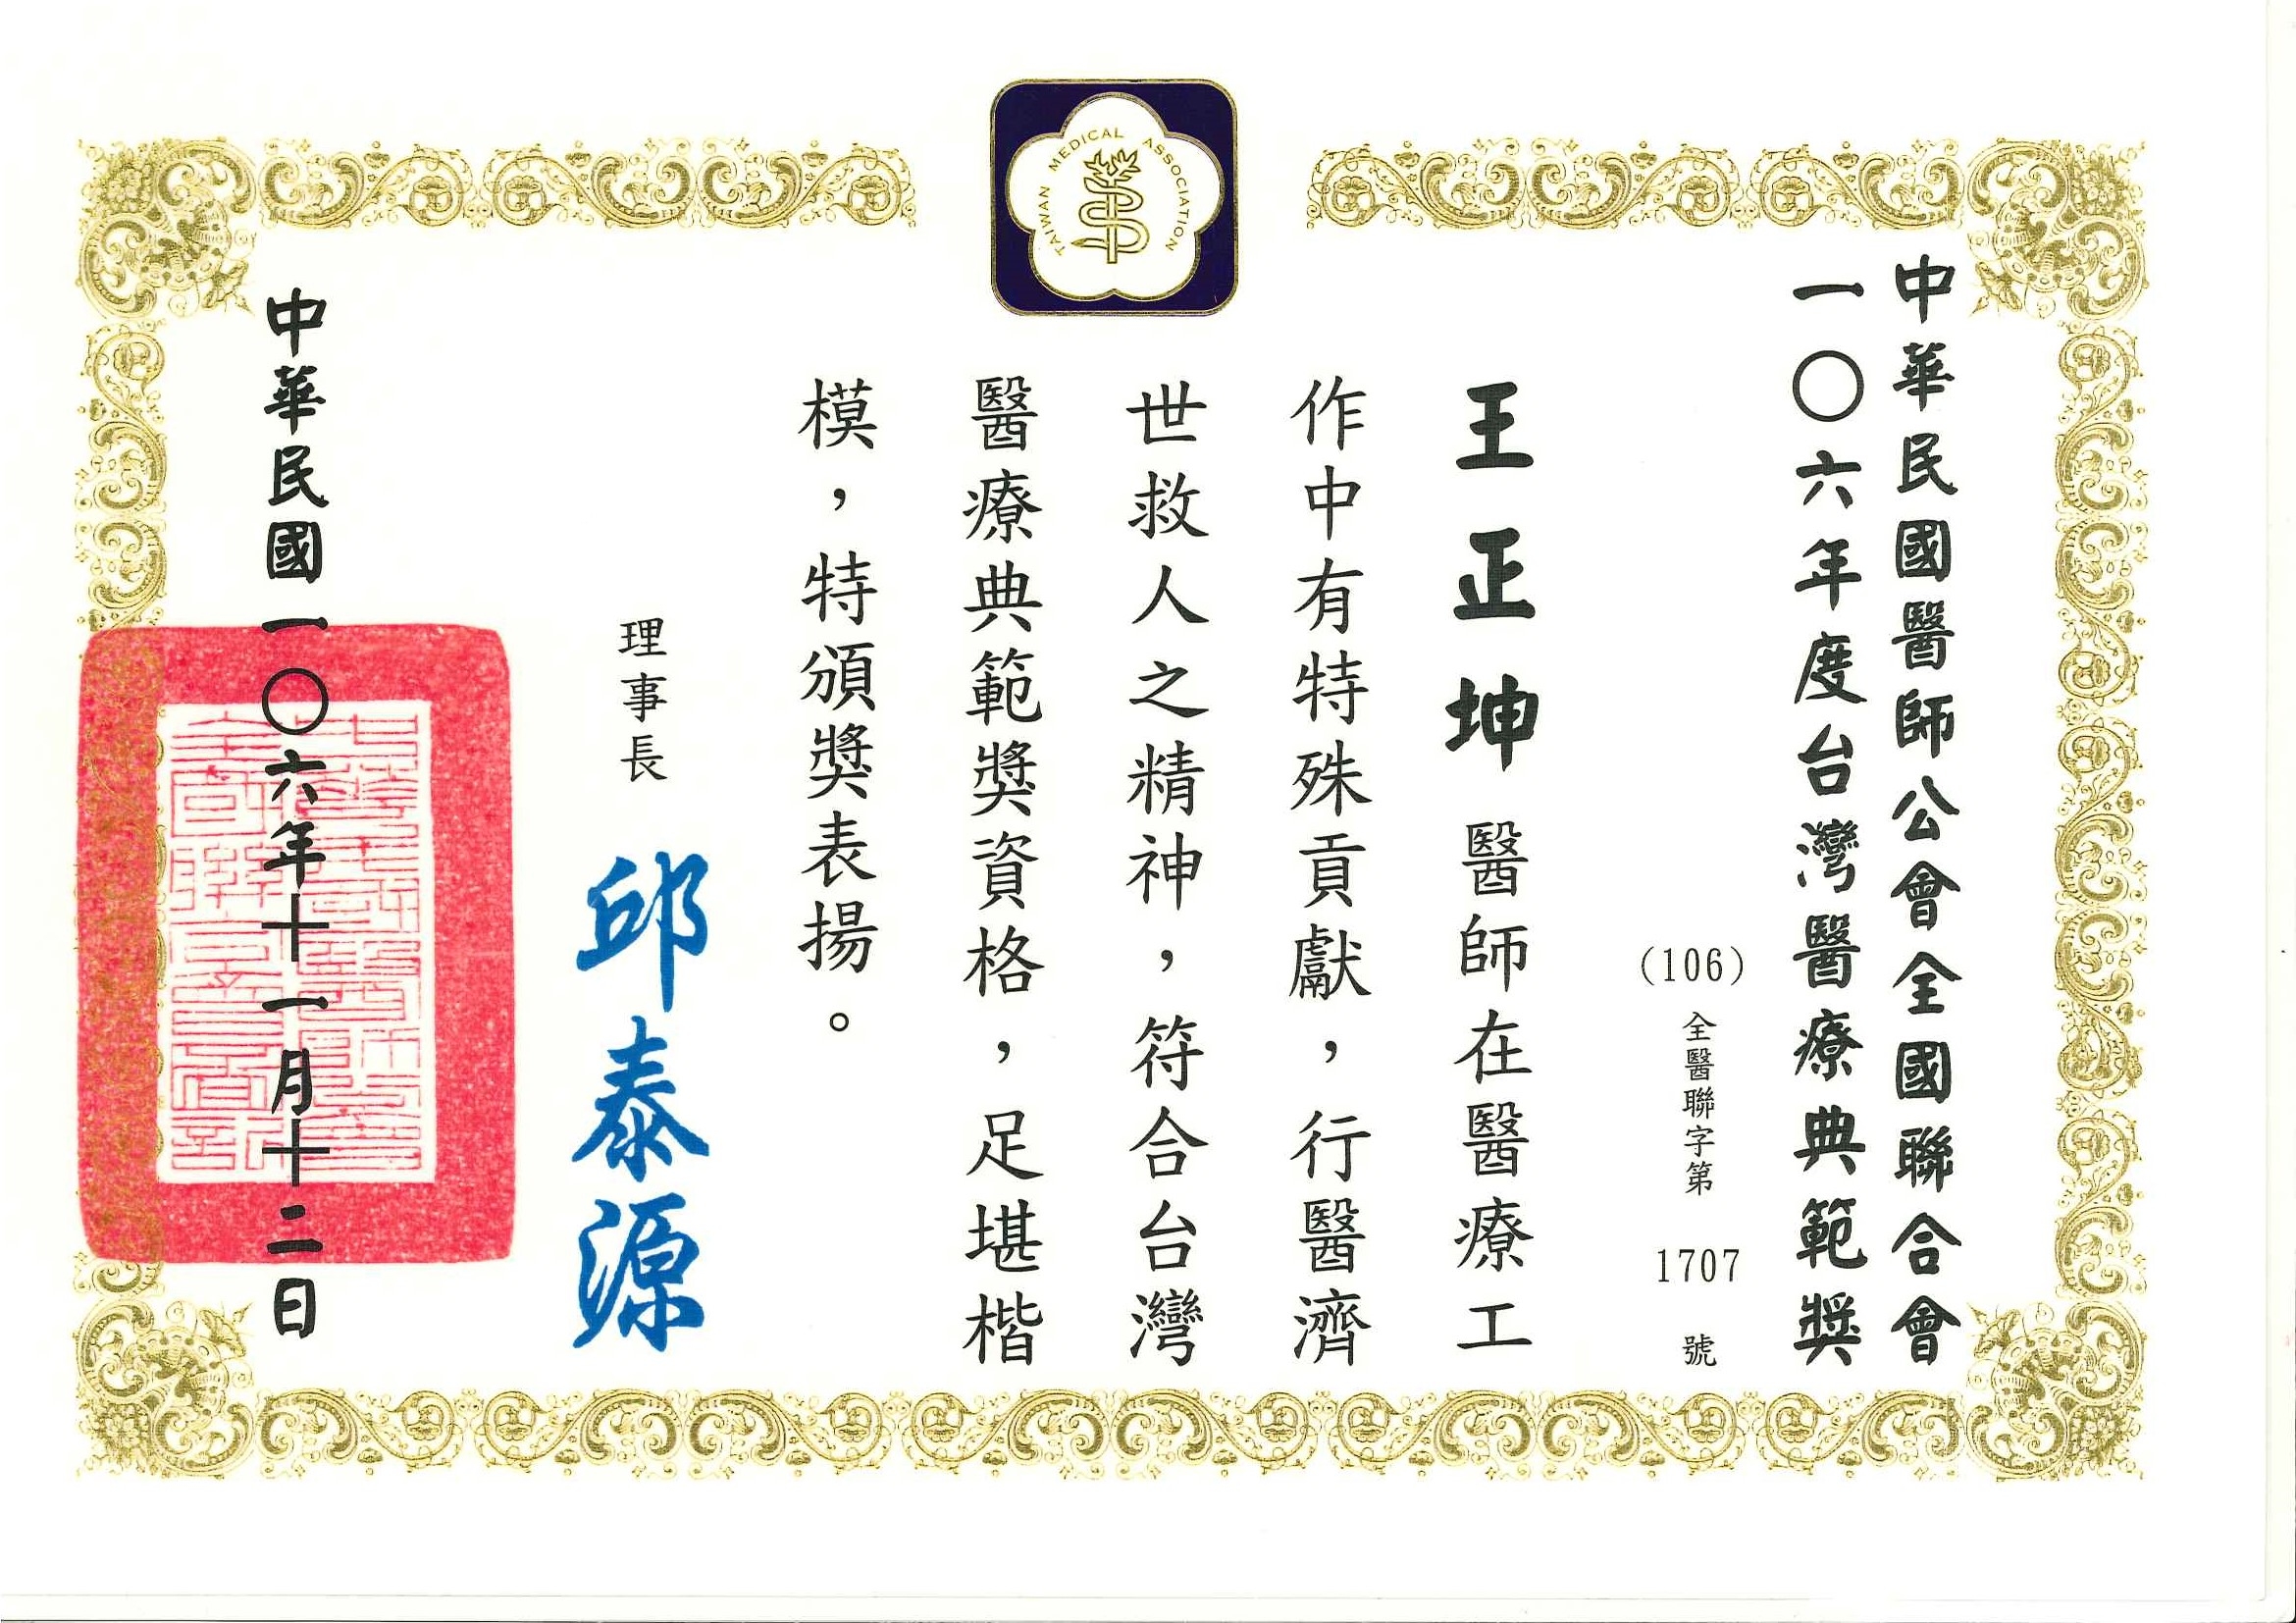 TAIWAN MEDICAL ASSOCIATION
中華民國醫師公會全國聯合會
一〇六年度台灣醫療典範獎
(106)全醫聯字第 1707 號
王正坤醫師在醫療工
作中有特殊貢獻，行醫濟
世救人之精神，符合台灣
醫療典範獎資格，足堪楷
模，特頒獎表揚。
理事長 邱泰源
中華民國一〇六年十一月十二日